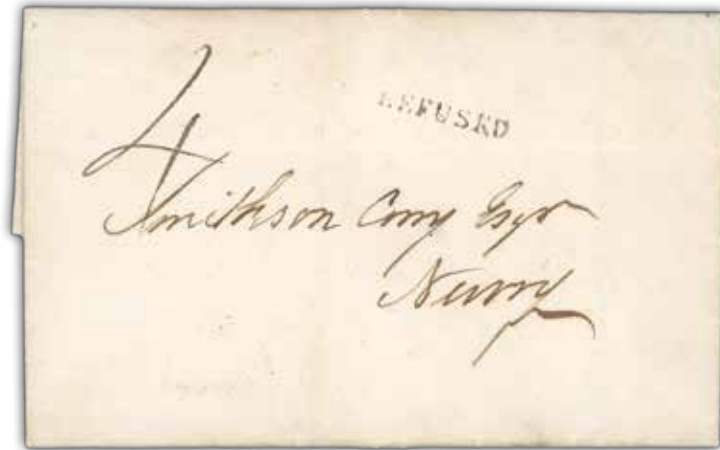 4
REFUSED
Smithson Corry Esqr
Newry